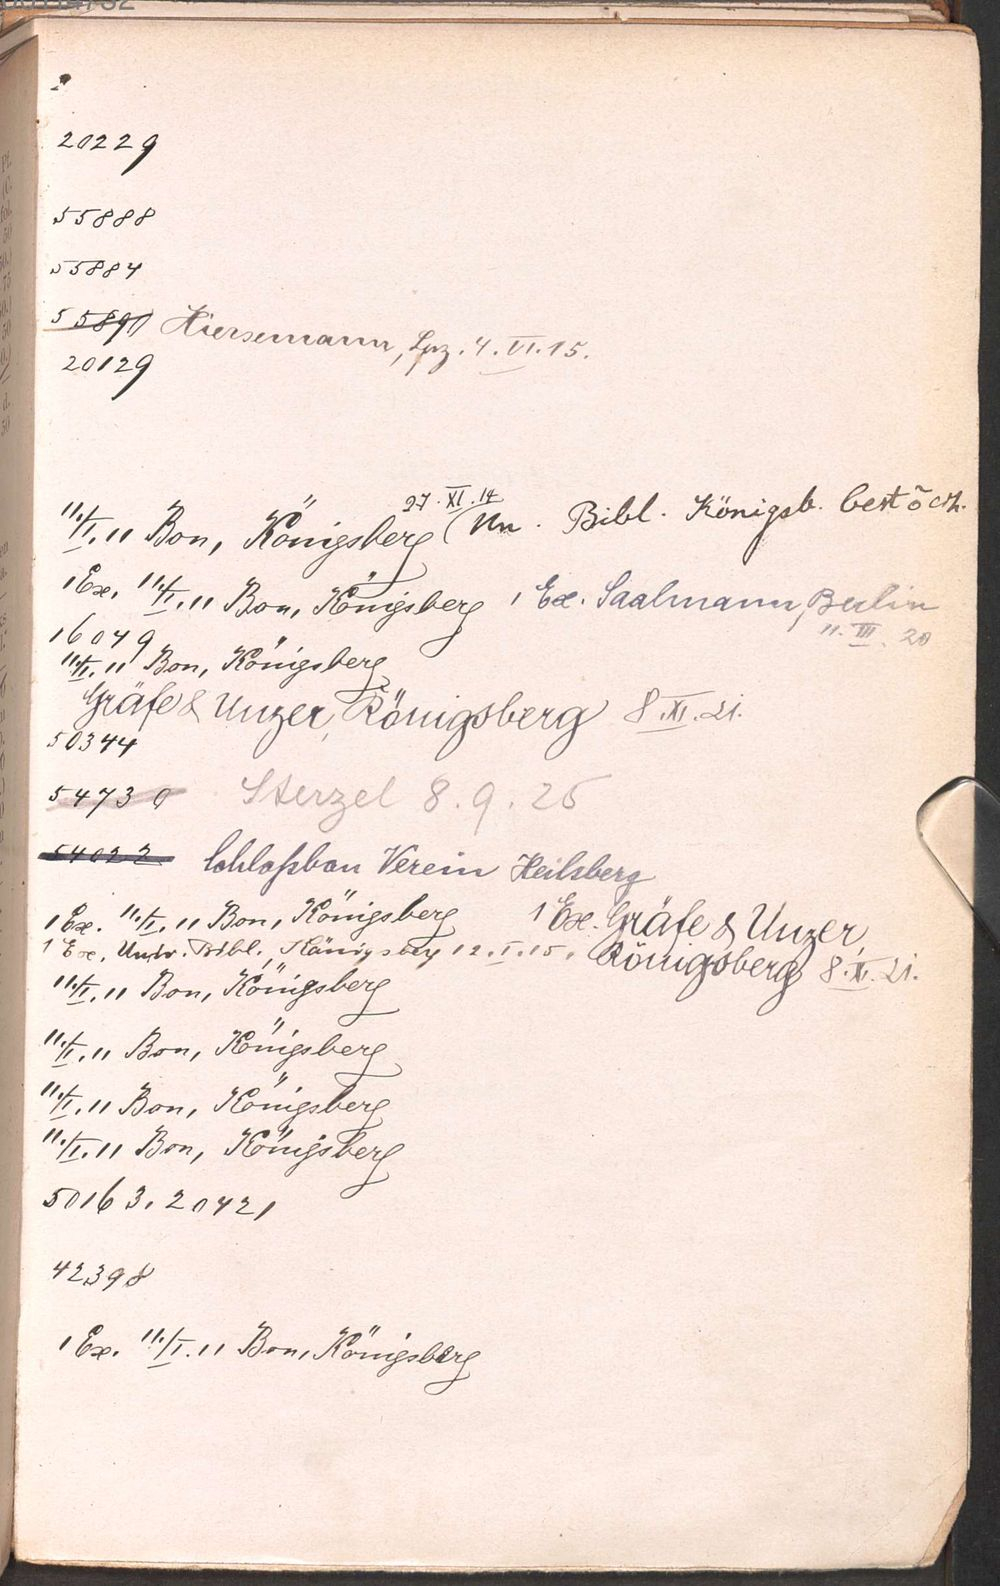 20229
55888
55884
55890 Hiersemann, Lpz. 4. VI. 15.
20129
27. XI. 14
11./I. 11 Bon, Königsberg (Un. Bibl. Königsb.
1 Ex. 11./I. 11 Bon, Königsberg 1 Ex. Saalmann, Berlin
11. III. 20
16049
11./I. 11 Bon, Königsberg
Gräfe & Unzer, Königsberg 8. XI. 21.
50344
54730 Sterzel 8.9.25
54022 Schloßbau Verein Heilsberg
1 Ex. 11./I. 11 Bon, Königsberg 1 Ex. Gräfe & Unzer,
1 Ex. Univ. Bibl., Königsberg 12. I. 15. Königsberg 8. XI. 21.
11./I. 11 Bon, Königsberg
11./I. 11 Bon, Königsberg
11./I. 11 Bon, Königsberg
11./I. 11 Bon, Königsberg
50163. 20421
42398
1 Ex. 11./I. 11 Bon, Königsberg